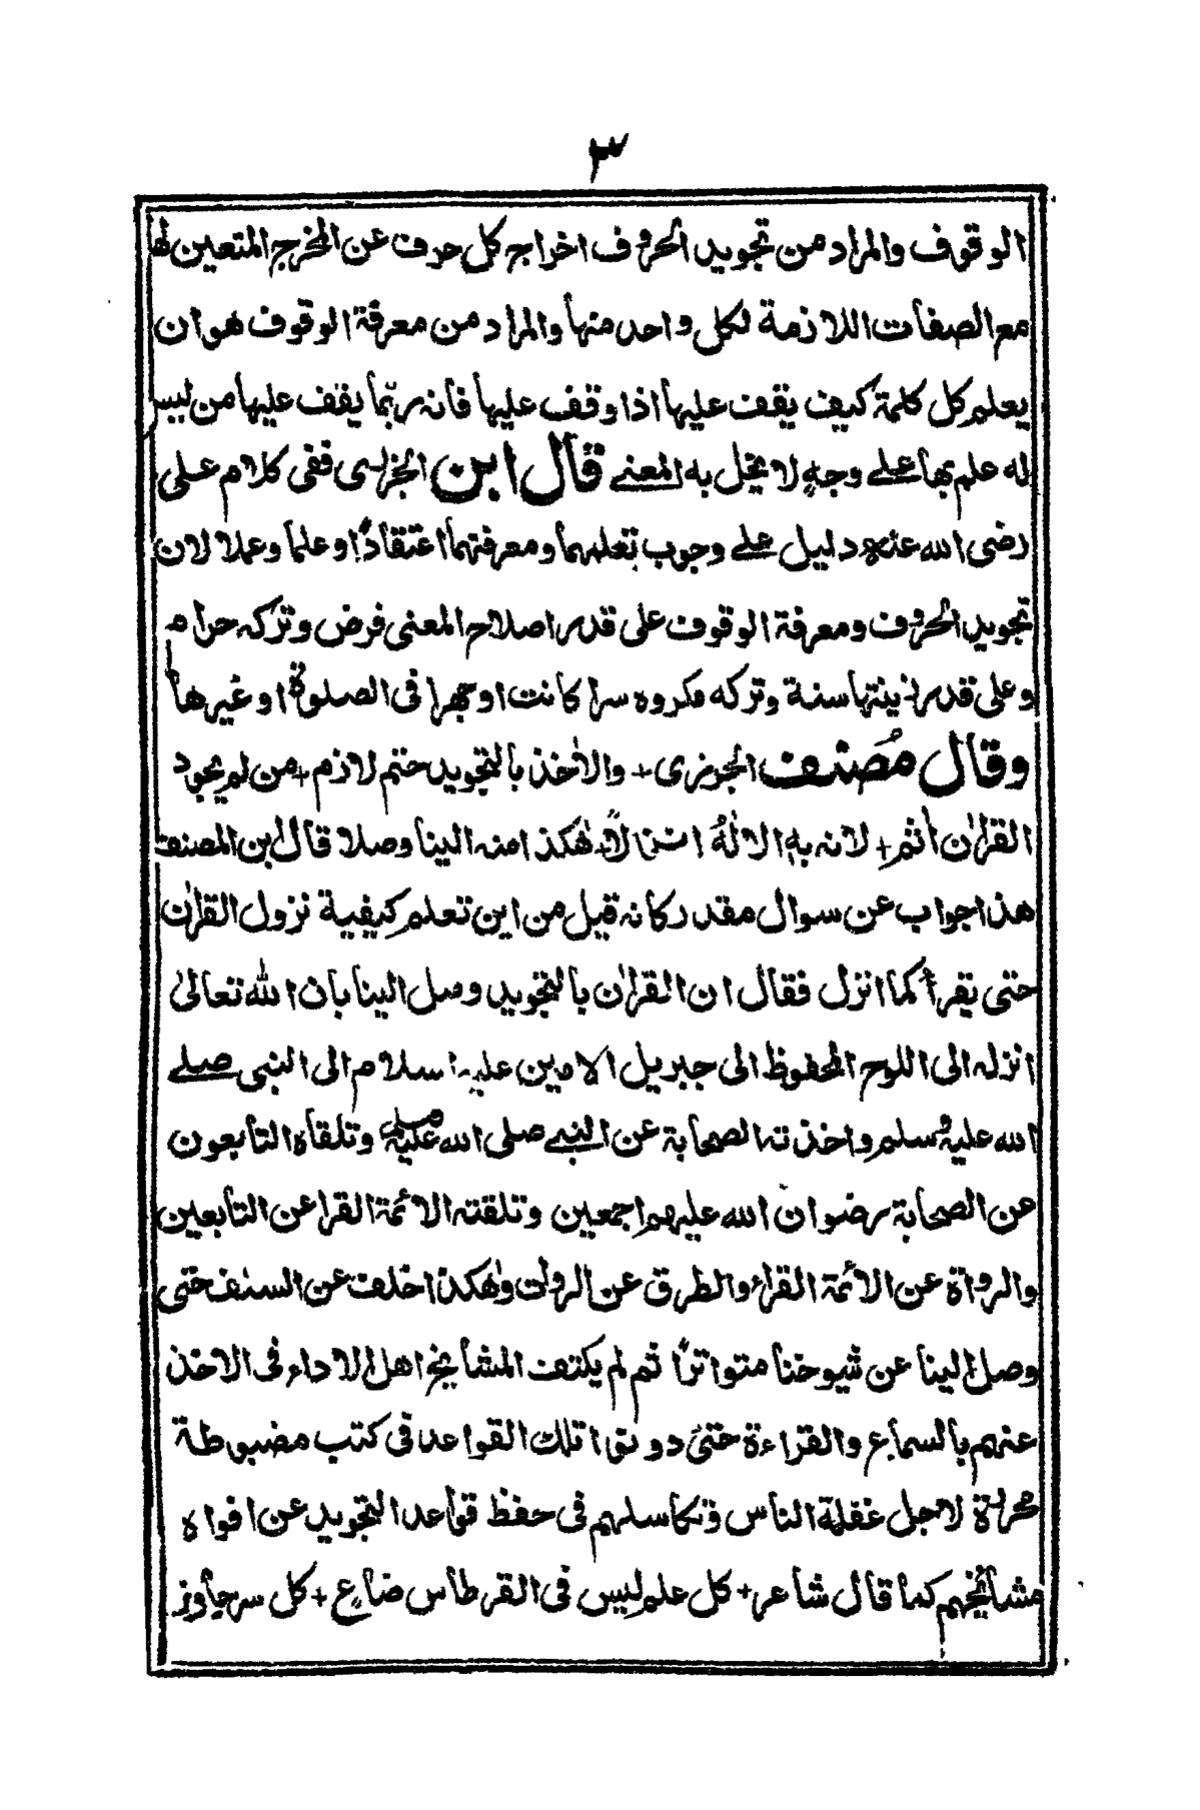 ٣
الوقوف والمراد من تجويد الحروف اخراج كل حرف عن المخرج المتعين لها
مع الصفات اللازمة لكل واحد منها والمراد من معرفة الوقوف هو ان
يعلم كل كلمة كيف يقف عليها اذا وقف عليها فانه ربّما يقف عليها من ليس
له علم بها علے وجهٍ لا يخل به المعنے قال ابن الجزرى ففى كلام على
رضى الله عنه دليل علے وجوب تعلمهما ومعرفتهما اعتقادًا وعلما وعملا لان
تجويد الحروف ومعرفة الوقوف على قدر اصلاح المعنى فرض وتركه حرام
وعلى قدر زينتها سنة وتركه مكروه سرا كانت او جهرا فى الصلوة او غيرها
وقال مُصنف الجزرى + والاخذ بالتجويد حتم لازم + من لم يجود
القراٰن اثم + لانه به الالٰهُ انزلا + وهٰكذا منه الينا وصلا قال ابن المصنف
هذا جواب عن سوال مقدر كانه قيل من اين تعلم كيفية نزول القراٰن
حتى يقرأ كما انزل فقال ان القراٰن بالتجويد وصل الينا بان الله تعالىٰ
انزله الى اللوح المحفوظ الى جبريل الامين عليه اسلام الى النبى صلے
الله عليه وسلم واخذ ته الصحابة عن النبے صلى الله عليه وسلم وتلقاه التابعون
عن الصحابة رضوان الله عليهم اجمعين وتلقته الائمة القرا عن التابعين
والرواة عن الائمة القراء والطرق عن الروات وهٰكذا خلف عن السنف حتى
وصل الينا عن شيوخنا متواترًا ثم لم يكتف المشايخ اهل الاداء فى الاخذ
عنهم بالسماع والقراءة حتىٰ دونوا تلك القواعد فى كتب مضبوطة
محررة لاجل غفلة الناس وتكاسلهم فى حفظ قواعد التجويد عن افواه
مشائخهم كما قال شاعر + كل علم ليس فى القرطاس ضاع + كل سر جاوز